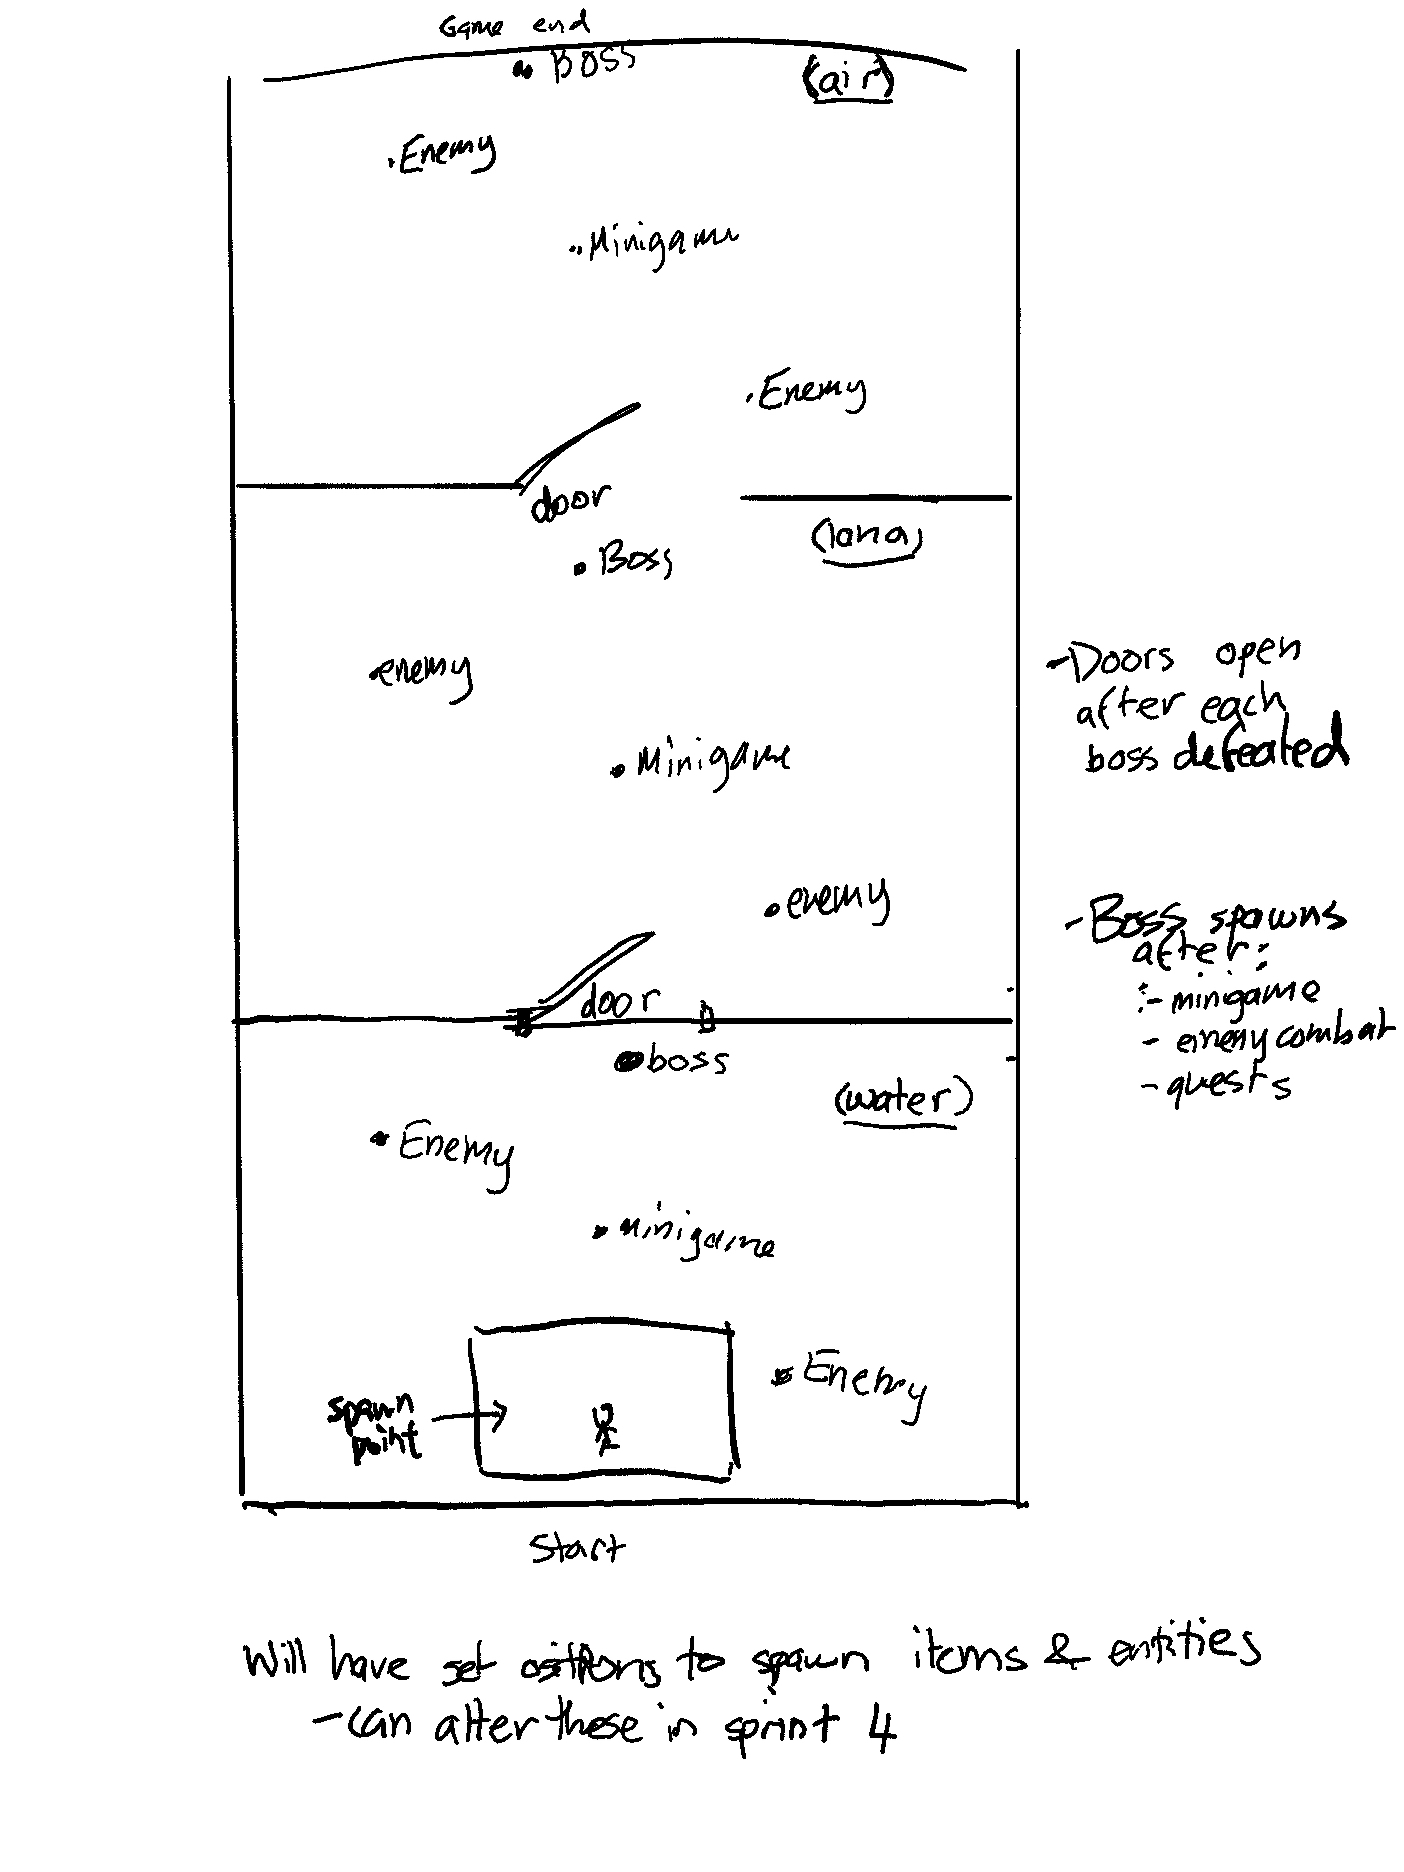 Game end
BOSS
(air)
Enemy
Minigame
Enemy
door
(land)
Boss
enemy
Minigame
enemy
door
boss
(water)
Enemy
minigame
Enemy
spawn
point
Start
- Doors open
after each
boss defeated
- Boss spawns
after:
- minigame
- enemy combat
- quests
Will have set positions to spawn items & entities
- can alter these in sprint 4